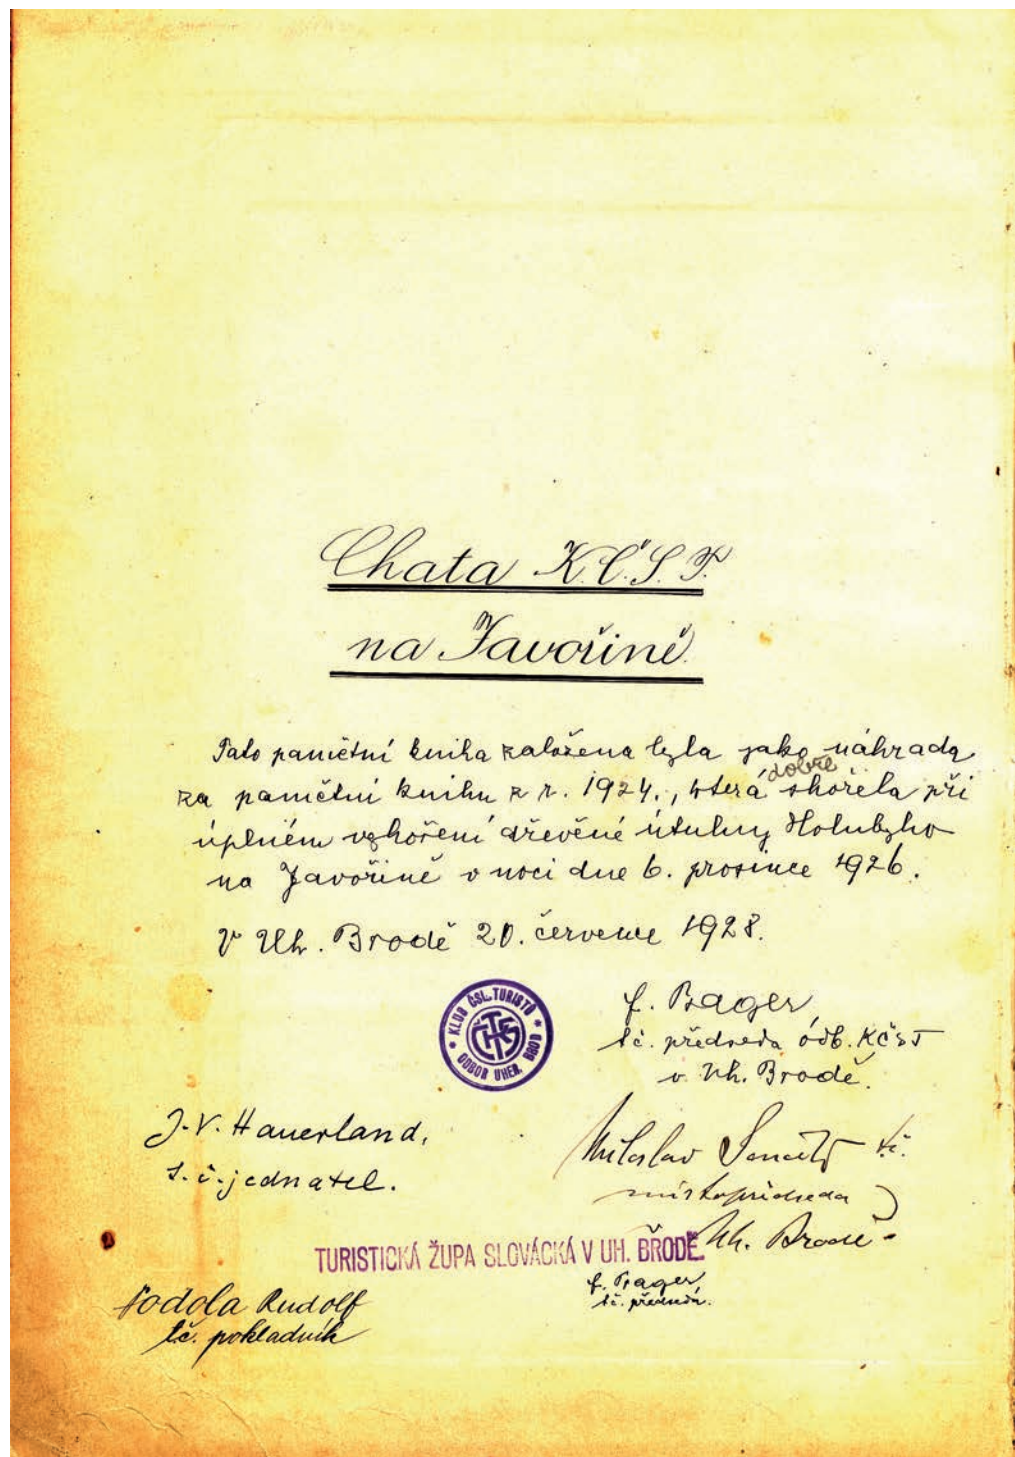 Chata K.Č.S.T.
na Javořině.
Tato pamětní kniha založena byla jako náhrada
dobře
za pamětní knihu z r. 1924., která shořela při
úplném vyhoření dřevěné útulny Holubyho
na Javořině v noci dne 6. prosince 1926.
V Uh. Brodě 20. července 1928.
KLUB ČSL. TURISTŮ
ODBOR UHER. BROD
KČST
f. Bager,
tč. předseda odb. KČST
v Uh. Brodě.
J. V. Hauerland,
t. č. jednatel.
Miloslav tč.
místopředseda
Uh. Brodě
TURISTICKÁ ŽUPA SLOVÁCKÁ V UH. BRODĚ.
f. Bager,
tč. předseda.
Podola Rudolf
tč. pokladník